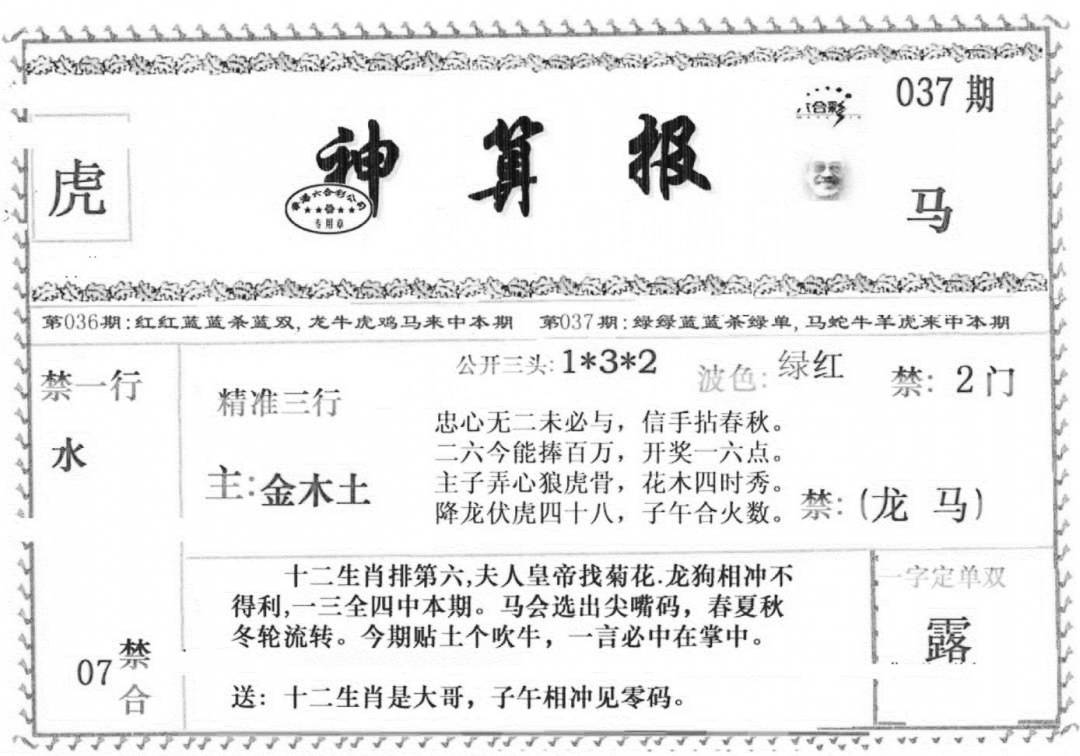 037期
六合彩
虎
神算报
香港六合彩公司
专用章
马
第036期:红红蓝蓝杀蓝双,龙牛虎鸡马来中本期 第037期:绿绿蓝蓝杀绿单,马蛇牛羊虎来中本期
禁一行
水
精准三行
主:金木土
公开三头:1*3*2
波色:绿红
禁:2门
忠心无二未必与,信手拈春秋。
二六今能捧百万,开奖一六点。
主子弄心狼虎骨,花木四时秀。
降龙伏虎四十八,子午合火数。
禁:(龙 马)
07禁合
十二生肖排第六,夫人皇帝找菊花.龙狗相冲不
得利,一三全四中本期。马会选出尖嘴码,春夏秋
冬轮流转。今期贴士个吹牛,一言必中在掌中。
送:十二生肖是大哥,子午相冲见零码。
一字定单双
露